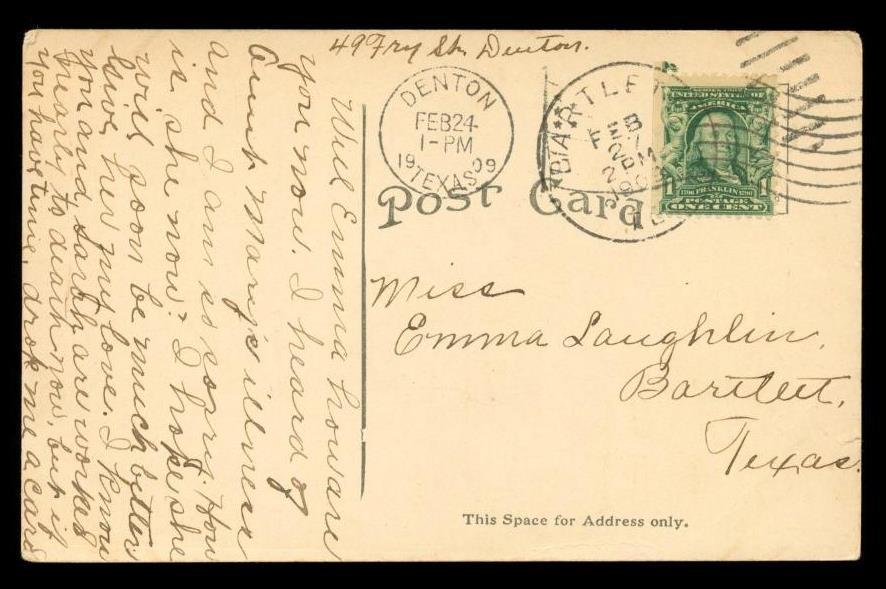 49 Fry St. Denton.
Well Emma how are
you now. I heard of
Aunt Mary's illness
and I am so sorry. How
is she now? I hope she
will soon be much better
Give her my love. I know
you and Sarah are worked
nearly to death now, but if
you have time, drop me a card
DENTON
FEB 24
1-PM
1909
TEXAS
BARTLETT
FEB
2PM
SERIES 1902
UNITED STATES OF
AMERICA
1706 FRANKLIN 1790
1 1
POSTAGE
ONE CENT
Post Card
Miss
Emma Laughlin,
Bartlett,
Texas.
This Space for Address only.